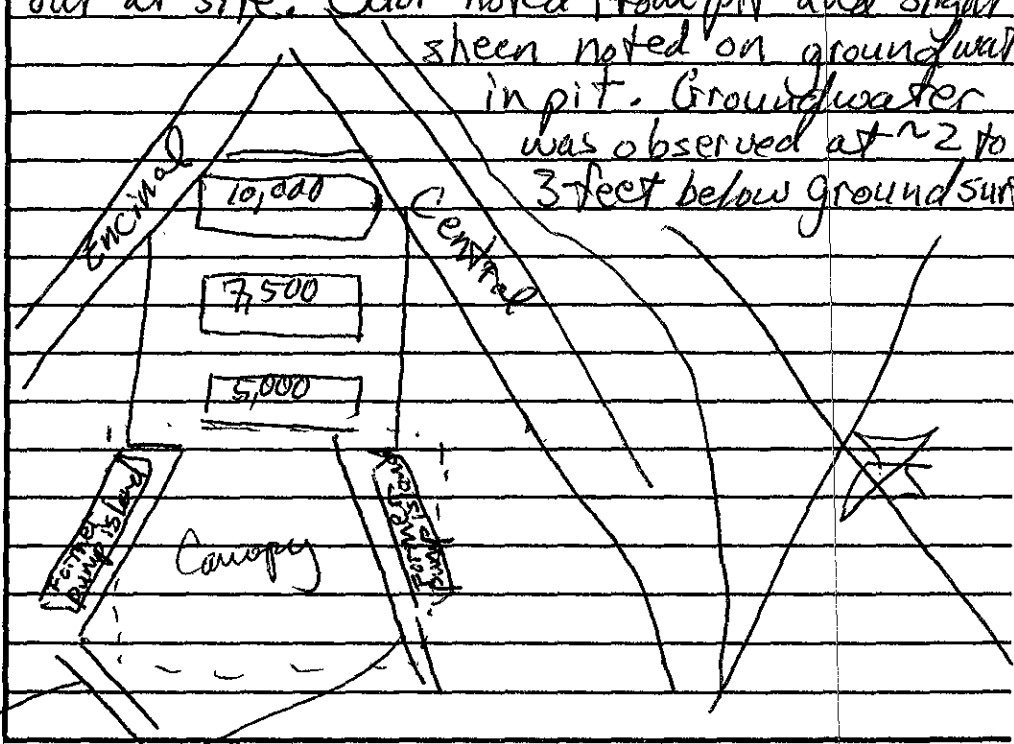 at site. Odor noted from pit and
sheen noted on groundwat
in pit. Groundwater
was observed at ~2 to
3 feet below ground surf
Encinal
10,000
Central
7,500
5,000
Former
pump island
Canopy
Former
pump island